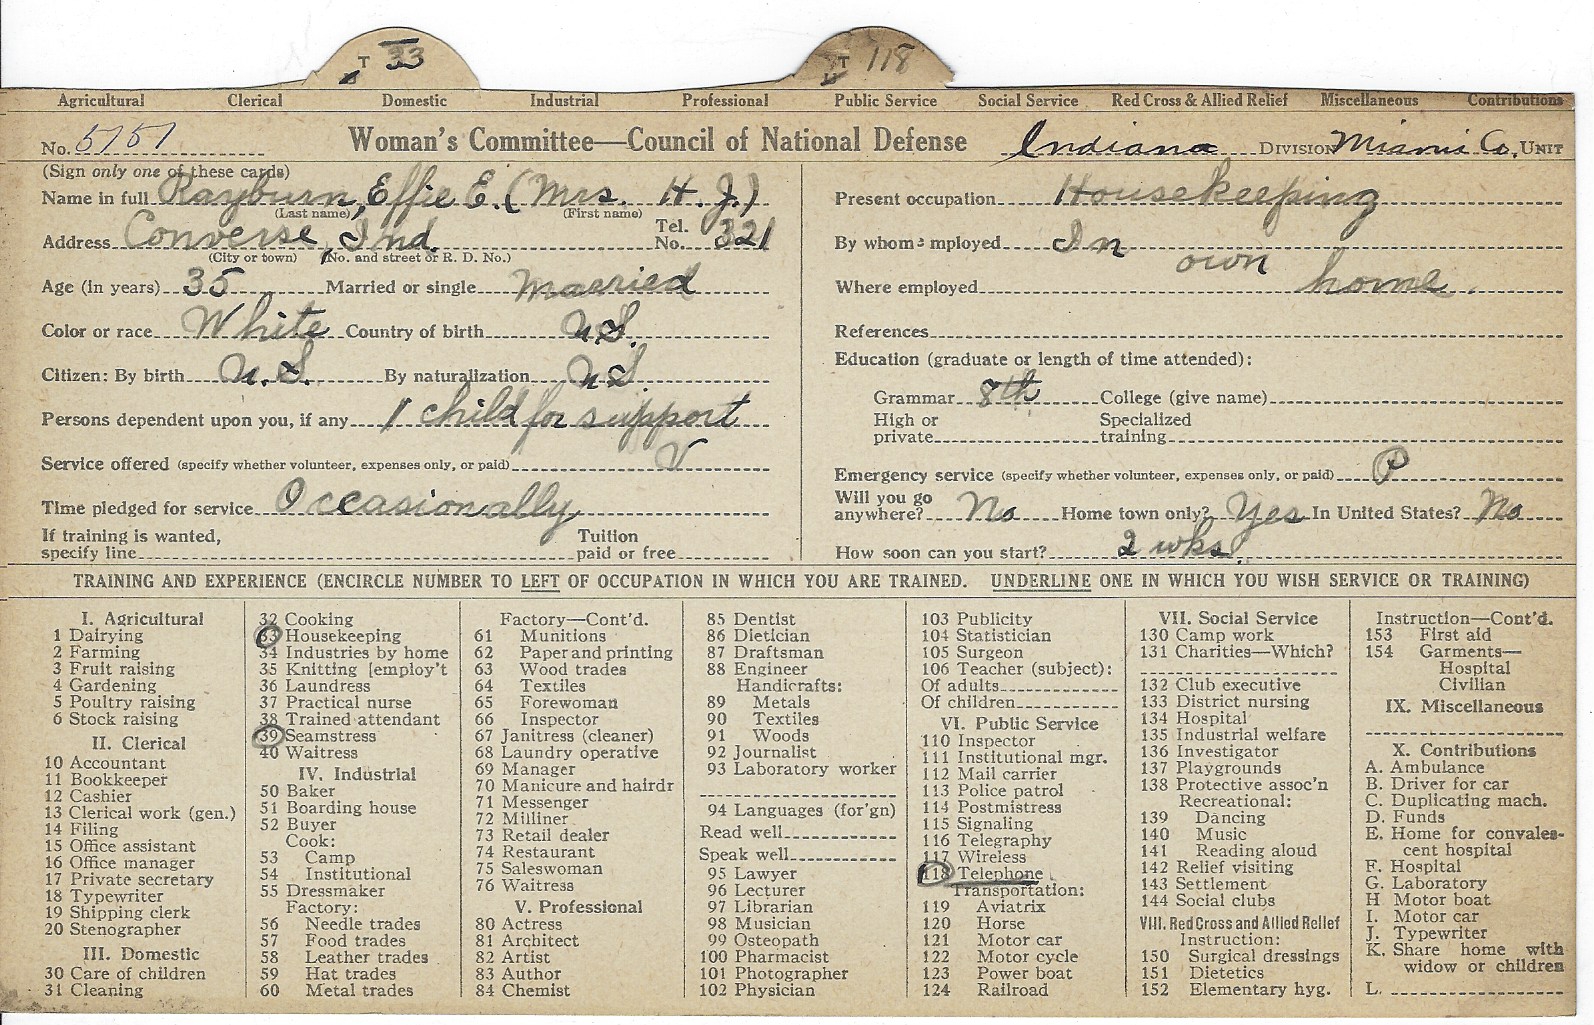 T 33 T 118
Agricultural Clerical Domestic Industrial Professional Public Service Social Service Red Cross & Allied Relief Miscellaneous Contributions
No. 5757 Woman's Committee—Council of National Defense Indiana DIVISION Miami Co. UNIT
(Sign only one of these cards)
Name in full Rayburn, Effie E. (Mrs. H. J.)
(Last name) (First name)
Address Converse, Ind. Tel. No. 321
(City or town) (No. and street or R. D. No.)
Age (in years) 35 Married or single Married
Color or race White Country of birth U.S.
Citizen: By birth U.S. By naturalization U.S.
Persons dependent upon you, if any 1 child for support
Service offered (specify whether volunteer, expenses only, or paid) V
Time pledged for service Occasionally
If training is wanted, specify line Tuition paid or free
Present occupation Housekeeping
By whom employed In own
Where employed home.
References
Education (graduate or length of time attended):
Grammar 8th College (give name)
High or private Specialized training
Emergency service (specify whether volunteer, expenses only, or paid) P
Will you go anywhere? No Home town only? Yes In United States? No
How soon can you start? 2 wks.
TRAINING AND EXPERIENCE (ENCIRCLE NUMBER TO LEFT OF OCCUPATION IN WHICH YOU ARE TRAINED. UNDERLINE ONE IN WHICH YOU WISH SERVICE OR TRAINING)
I. Agricultural
1 Dairying
2 Farming
3 Fruit raising
4 Gardening
5 Poultry raising
6 Stock raising
II. Clerical
10 Accountant
11 Bookkeeper
12 Cashier
13 Clerical work (gen.)
14 Filing
15 Office assistant
16 Office manager
17 Private secretary
18 Typewriter
19 Shipping clerk
20 Stenographer
III. Domestic
30 Care of children
31 Cleaning
32 Cooking
33 Housekeeping
34 Industries by home
35 Knitting [employ't
36 Laundress
37 Practical nurse
38 Trained attendant
39 Seamstress
40 Waitress
IV. Industrial
50 Baker
51 Boarding house
52 Buyer
Cook:
53 Camp
54 Institutional
55 Dressmaker
Factory:
56 Needle trades
57 Food trades
58 Leather trades
59 Hat trades
60 Metal trades
Factory—Cont'd.
61 Munitions
62 Paper and printing
63 Wood trades
64 Textiles
65 Forewoman
66 Inspector
67 Janitress (cleaner)
68 Laundry operative
69 Manager
70 Manicure and hairdr
71 Messenger
72 Milliner
73 Retail dealer
74 Restaurant
75 Saleswoman
76 Waitress
V. Professional
80 Actress
81 Architect
82 Artist
83 Author
84 Chemist
85 Dentist
86 Dietician
87 Draftsman
88 Engineer
Handicrafts:
89 Metals
90 Textiles
91 Woods
92 Journalist
93 Laboratory worker
94 Languages (for'gn)
Read well
Speak well
95 Lawyer
96 Lecturer
97 Librarian
98 Musician
99 Osteopath
100 Pharmacist
101 Photographer
102 Physician
103 Publicity
104 Statistician
105 Surgeon
106 Teacher (subject):
Of adults
Of children
VI. Public Service
110 Inspector
111 Institutional mgr.
112 Mail carrier
113 Police patrol
114 Postmistress
115 Signaling
116 Telegraphy
117 Wireless
118 Telephone
Transportation:
119 Aviatrix
120 Horse
121 Motor car
122 Motor cycle
123 Power boat
124 Railroad
VII. Social Service
130 Camp work
131 Charities—Which?
132 Club executive
133 District nursing
134 Hospital
135 Industrial welfare
136 Investigator
137 Playgrounds
138 Protective assoc'n
Recreational:
139 Dancing
140 Music
141 Reading aloud
142 Relief visiting
143 Settlement
144 Social clubs
VIII. Red Cross and Allied Relief
Instruction:
150 Surgical dressings
151 Dietetics
152 Elementary hyg.
Instruction—Cont'd.
153 First aid
154 Garments—
Hospital
Civilian
IX. Miscellaneous
X. Contributions
A. Ambulance
B. Driver for car
C. Duplicating mach.
D. Funds
E. Home for convales-
cent hospital
F. Hospital
G. Laboratory
H. Motor boat
I. Motor car
J. Typewriter
K. Share home with
widow or children
L.